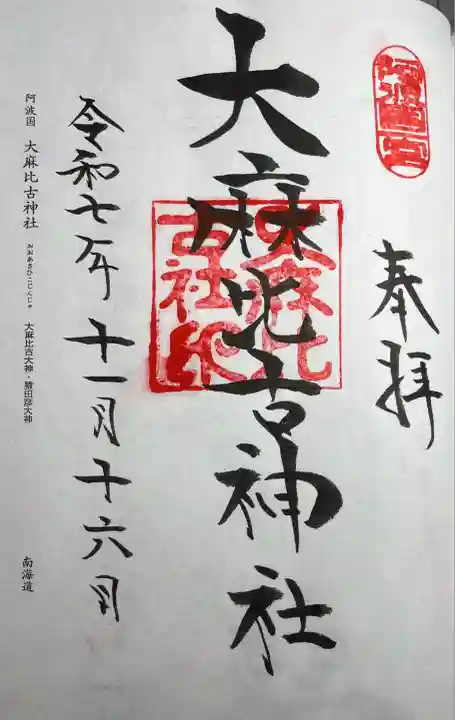 阿波一宮
奉拝
大麻比古神社
大麻比古社印
令和七年十一月十六日
阿波国 大麻比古神社 おおあさひこじんじゃ 大麻比古大神・猿田彦大神 南海道